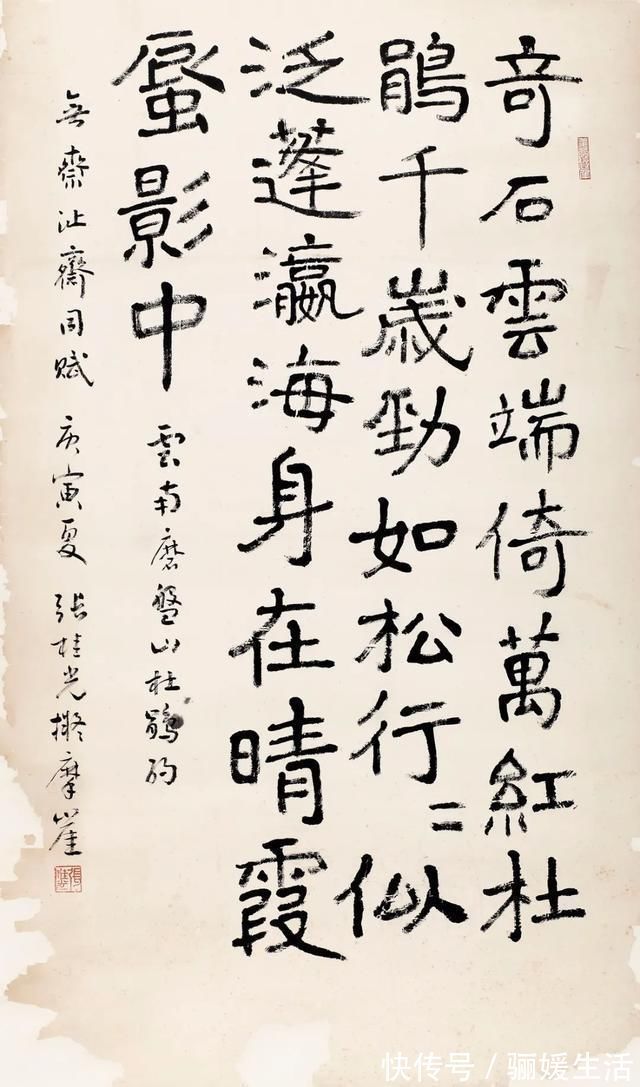 奇石雲端倚萬紅杜
鵑千歲勁如松行〻似
泛蓬瀛海身在晴霞
蜃影中
雲南磨盤山杜鵑
無齋沚齋同賦 庚寅夏 張桂光擬摩崖
快传号／骊媛生活